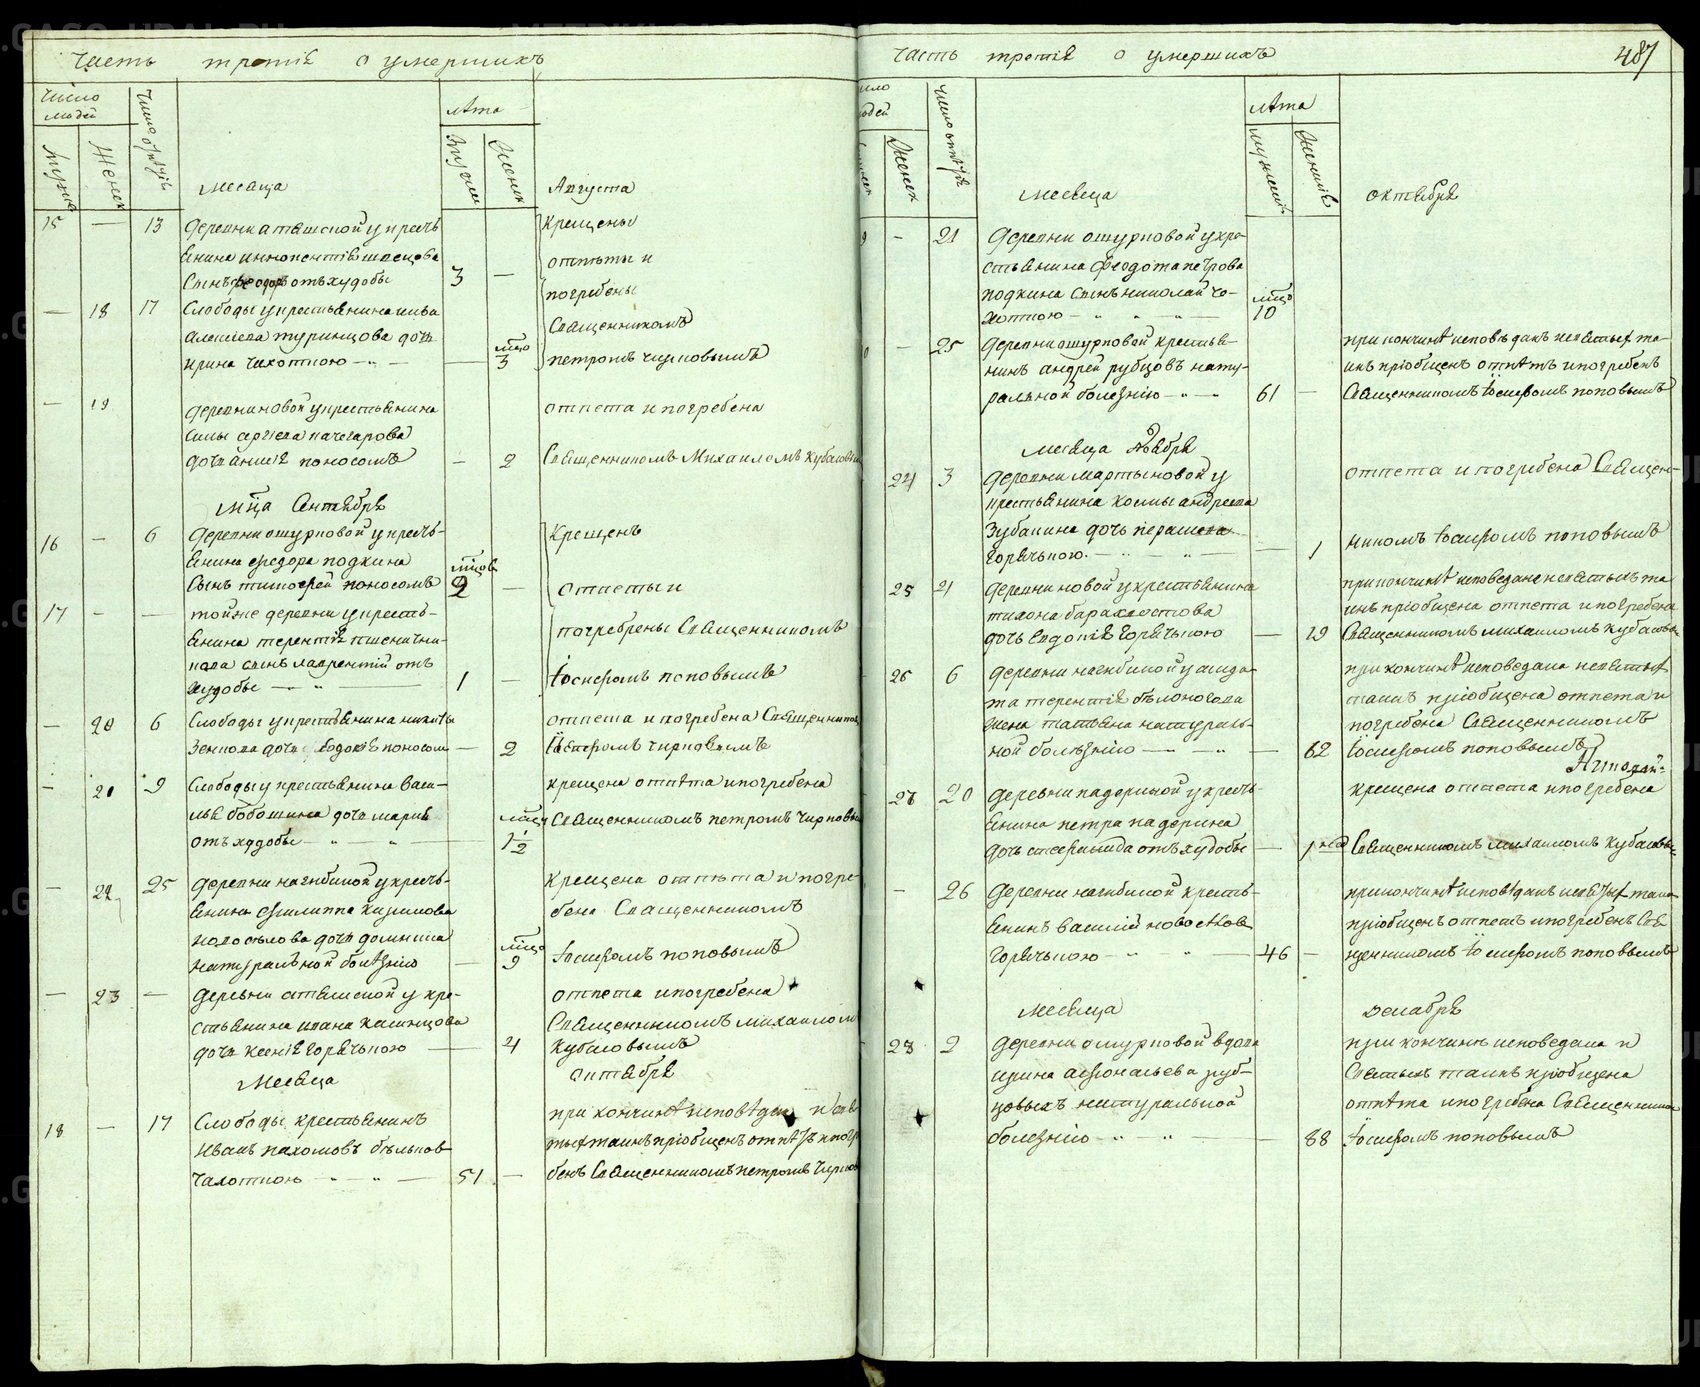 Часть третія о умершихъ
число людей
Мужеск
Женск
Число умерш
месяца
лѣта
Мужеск
Женск
Августа
15 — 13 деревни аташской у кресть
янина иннокентія швецова
сынъ феодоръ отъ худобы 3 —
крещены
отпѣты и
погребены
Священникомъ
петромъ чирковымъ
— 18 17 Слободы у крестьянина
алексіева туринцова дочь
ирина чахоткою — мцо 3
— 19 деревни новой у крестьянина
сергіева
дочь анна поносомъ — 2
отпета и погребена
Священникомъ Михаиломъ Кубасовым
мца Сентября
16 — 6 деревни ошурковой у кресть-
янина Федора подкина
сынъ тимофей поносомъ мцов 2 —
крещенъ
отпеты и
погребены Священникомъ
Іосифомъ поповымъ
17 — — тойже деревни у кресть-
янина терентія пшенични-
кова сынъ лаврентій отъ
худобы — 1 —
— 20 6 Слободы у крестьянина никиты
Зенкова дочь поносом — 2
отпета и погребена Священником
Петромъ чирковымъ
— 21 9 Слободы у крестьянина васи-
лья бобошина дочь марія
отъ худобы — мцы 1 1/2
крещена отпѣта и погребена
Священникомъ петромъ чирковы
— 22 25 деревни нагибиной у кресть-
янина филиппа
новоселова дочь домника
натуральной болѣзнію — мцо 9
крещена отпѣта и погре-
бена Священникомъ
Іосифомъ поповымъ
— 23 — деревни аташской у кре-
стьянина ивана казанцова
дочь ксенія горячкою — 4
отпета и погребена
Священникомъ михаиломъ
Кубасовымъ
Месяца октября
18 — 17 Слободы крестьянинъ
Иванъ пахомовъ бѣльков
чахоткою — 51 —
при кончинѣ исповѣдан и свя
тыхтаинъ пріобщенъ отпѣтъ и погр
бенъ Священникомъ петромъ Чирков
Часть третія о умершихъ
487
Женск
месяца
лѣта
Мужеск
Женск
октября
— 21 деревни ошурковой у кре-
стьянина Феодота петрова
подкина сынъ николай ча-
хоткою — мцо 10
— 25 деревни ошурковой крестья-
нинъ андрей рубцовъ нату-
ральной болезнію — 61 —
при кончинѣ исповѣданъ и святых та-
инъ пріобщенъ отпѣтъ и погребенъ
Священникомъ Іосифомъ поповымъ
месяца ноября
24 3 деревни мартыновой у
крестьянина козмы андреева
Зубакина дочь
горячкою — 1
отпета и погребена Священ-
никомъ Іосифомъ поповымъ
25 4 деревни новой у крестьянина
дочь евдокія горячкою — 19
при кончинѣ исповедана и святыхъ та
инъ пріобщена отпета и погребена
Священникомъ михаиломъ кубасовы
26 6 деревни нагибиной у солда-
та терентія бѣлоногова
жена татьяна натураль-
ной болѣзнію — 62
при кончинѣ исповедана и святых
таинъ пріобщена отпета и
погребена Священникомъ
Іосифомъ поповымъ
27 20 деревни падериной у кресть-
янина петра падерина
дочь отъ худобы — 1 нед
крещена отпета и погребена
Священникомъ михаиломъ Кубасовы
— 26 деревни нагибиной кресть-
янинъ василій новоселов
горячкою — 46 —
при кончинѣ исповѣданъ и святых таин
пріобщенъ отпетъ и погребенъ Свя
щенникомъ Іосифомъ поповымъ
месяца
Декабря
28 2 деревни ошурковой вдова
ирина афонасьева руб-
цовыхъ натуральной
болезнію — 88
при кончинѣ исповедана и
святыхъ таинъ пріобщена
отпѣта и погребена Священником
Іосифомъ поповымъ